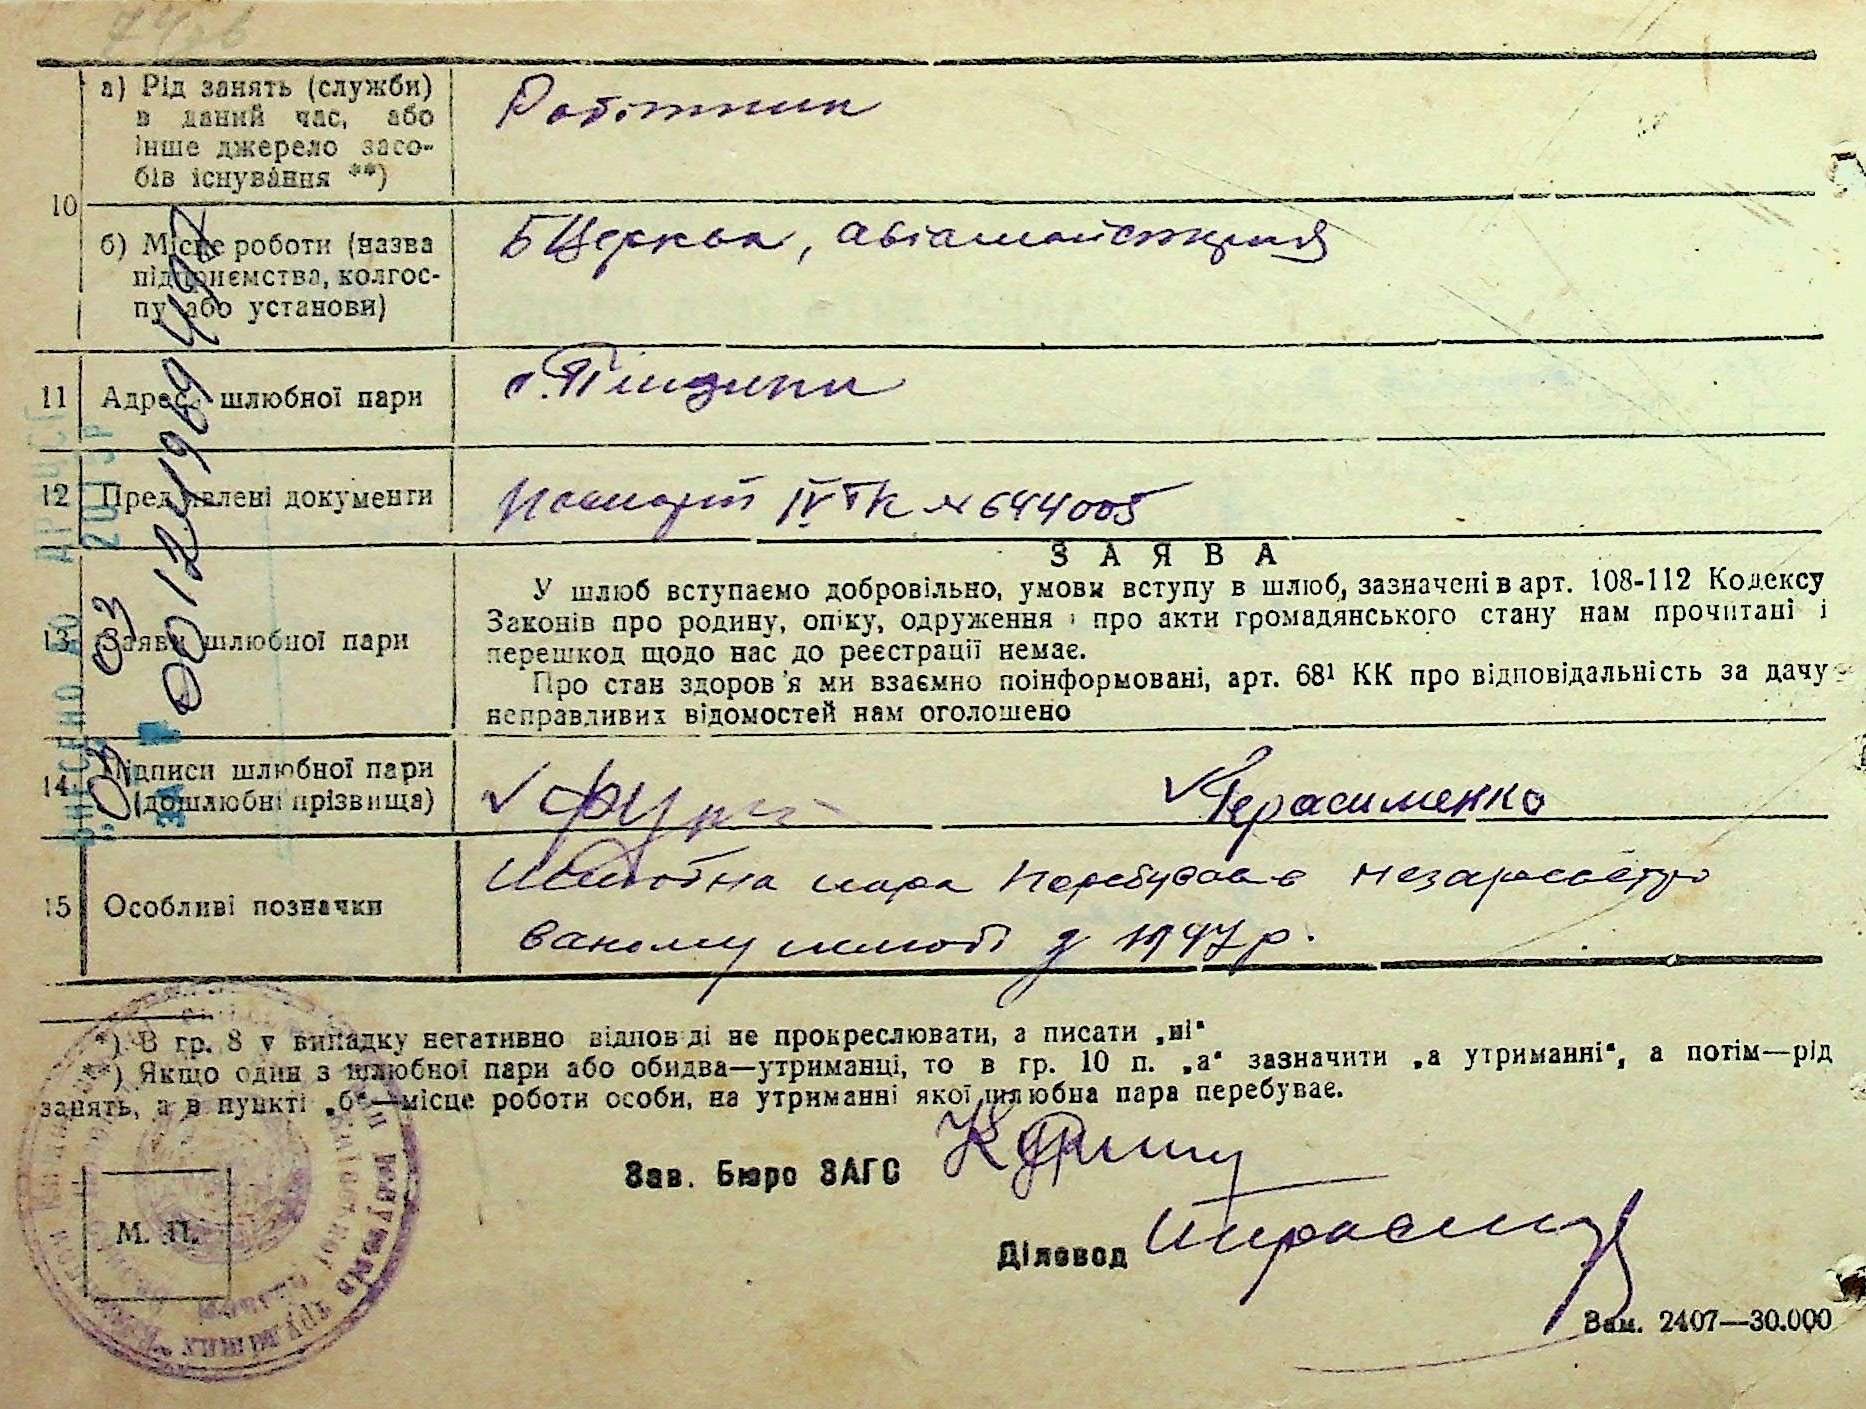 10
а) Рід занять (служби)
в даний час, або
інше джерело засо-
бів існування **)
Робітник
б) Місце роботи (назва
підприємства, колгос-
пу або установи)
БЦерква, авіамайстерня
11
Адреса шлюбної пари
с.Пищики
12
Пред'явлені документи
Паспорт IV ТК № 644005
13
Заяви шлюбної пари
ЗАЯВА
У шлюб вступаємо добровільно, умови вступу в шлюб, зазначені в арт. 108-112 Кодексу
Законів про родину, опіку, одруження і про акти громадянського стану нам прочитані і
перешкод щодо нас до реєстрації немає.
Про стан здоров'я ми взаємно поінформовані, арт. 68¹ КК про відповідальність за дачу
неправливих відомостей нам оголошено
14
Підписи шлюбної пари
(дошлюбні прізвища)
Герасименко
15
Особливі позначки
Шлюбна пара перебуває в незареєстро
ваному шлюбі з 1947 р.
00124196944
*) В гр. 8 у випадку негативно відповіді не прокреслювати, а писати „ні“
**) Якщо один з шлюбної пари або обидва—утриманці, то в гр. 10 п. „а“ зазначити „а утриманні“, а потім—рід
занять, а в пункті „б“—місце роботи особи, на утриманні якої шлюбна пара перебуває.
Зав. Бюро ЗАГС
Діловод
М. П.
Зам. 2407—30.000